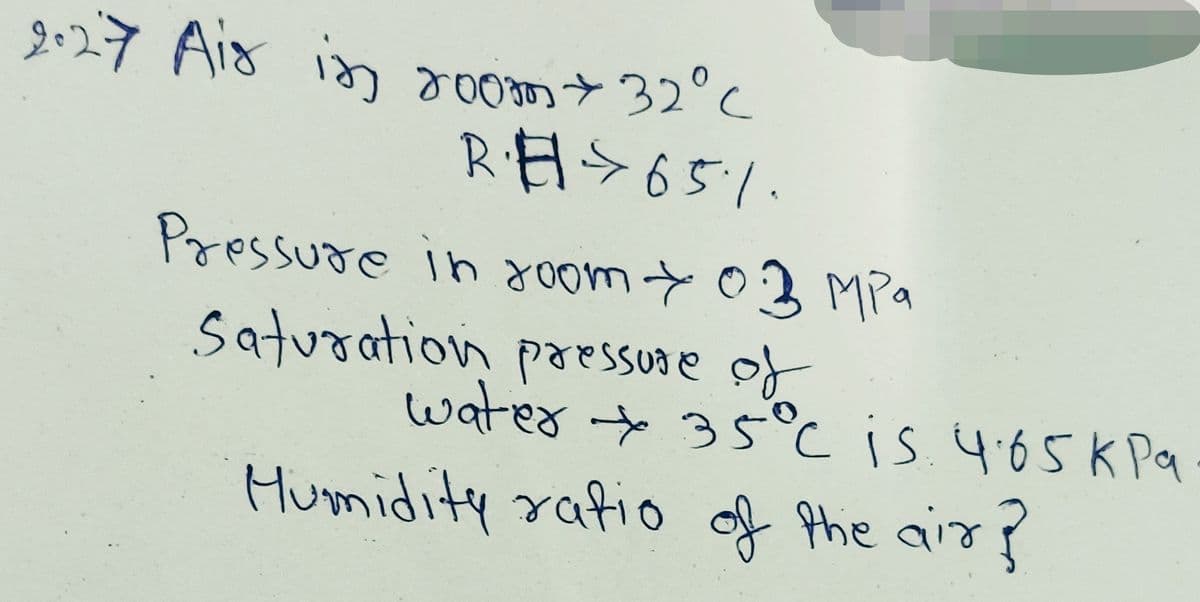 2.27 Air in room → 32°C
R.H → 65%.
Pressure in room → 0.3 MPa
Saturation pressure of
water → 35°C is 4.65 KPa.
Humidity ratio of the air?